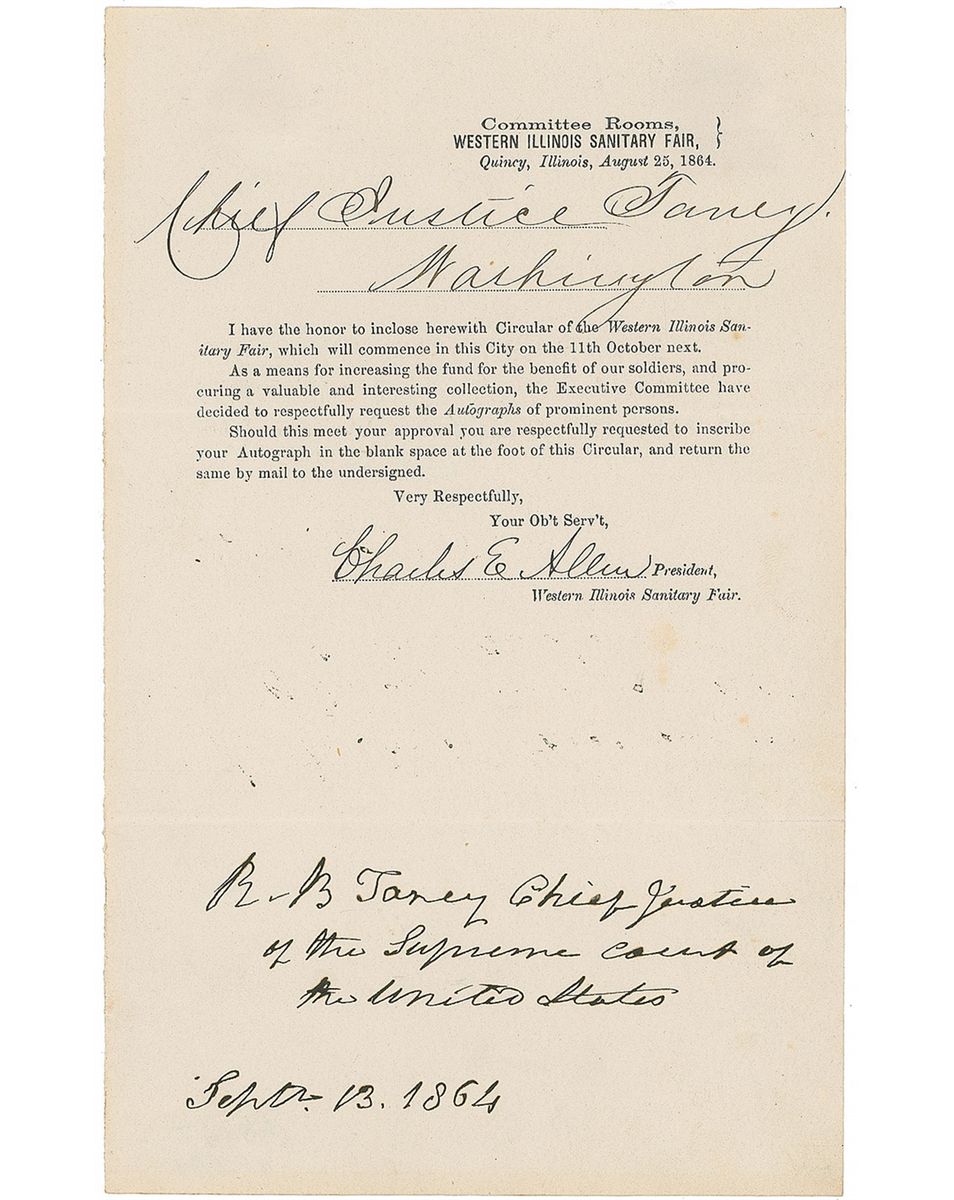 Committee Rooms,
WESTERN ILLINOIS SANITARY FAIR,
Quincy, Illinois, August 25, 1864.
Chief Justice Taney.
Washington
I have the honor to inclose herewith Circular of the Western Illinois San-
itary Fair, which will commence in this City on the 11th October next.
As a means for increasing the fund for the benefit of our soldiers, and pro-
curing a valuable and interesting collection, the Executive Committee have
decided to respectfully request the Autographs of prominent persons.
Should this meet your approval you are respectfully requested to inscribe
your Autograph in the blank space at the foot of this Circular, and return the
same by mail to the undersigned.
Very Respectfully,
Your Ob't Serv't,
Charles E Allen President,
Western Illinois Sanitary Fair.
R. B Taney Chief Justice
of the Supreme Court of
the United States
Septr. 13. 1864